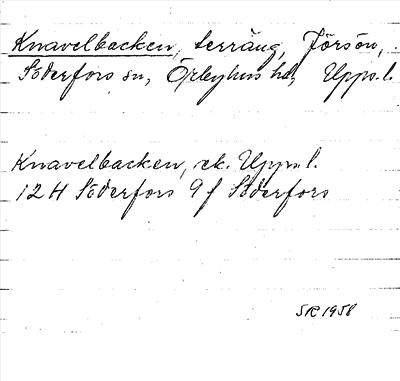 Knavelbacken, terräng, Jörsön,
Söderfors sn, Örbyhus hd, Upps. l.
Knavelbacken, ek. Upps. l.
12 H Söderfors 9 f Söderfors
SR 1958